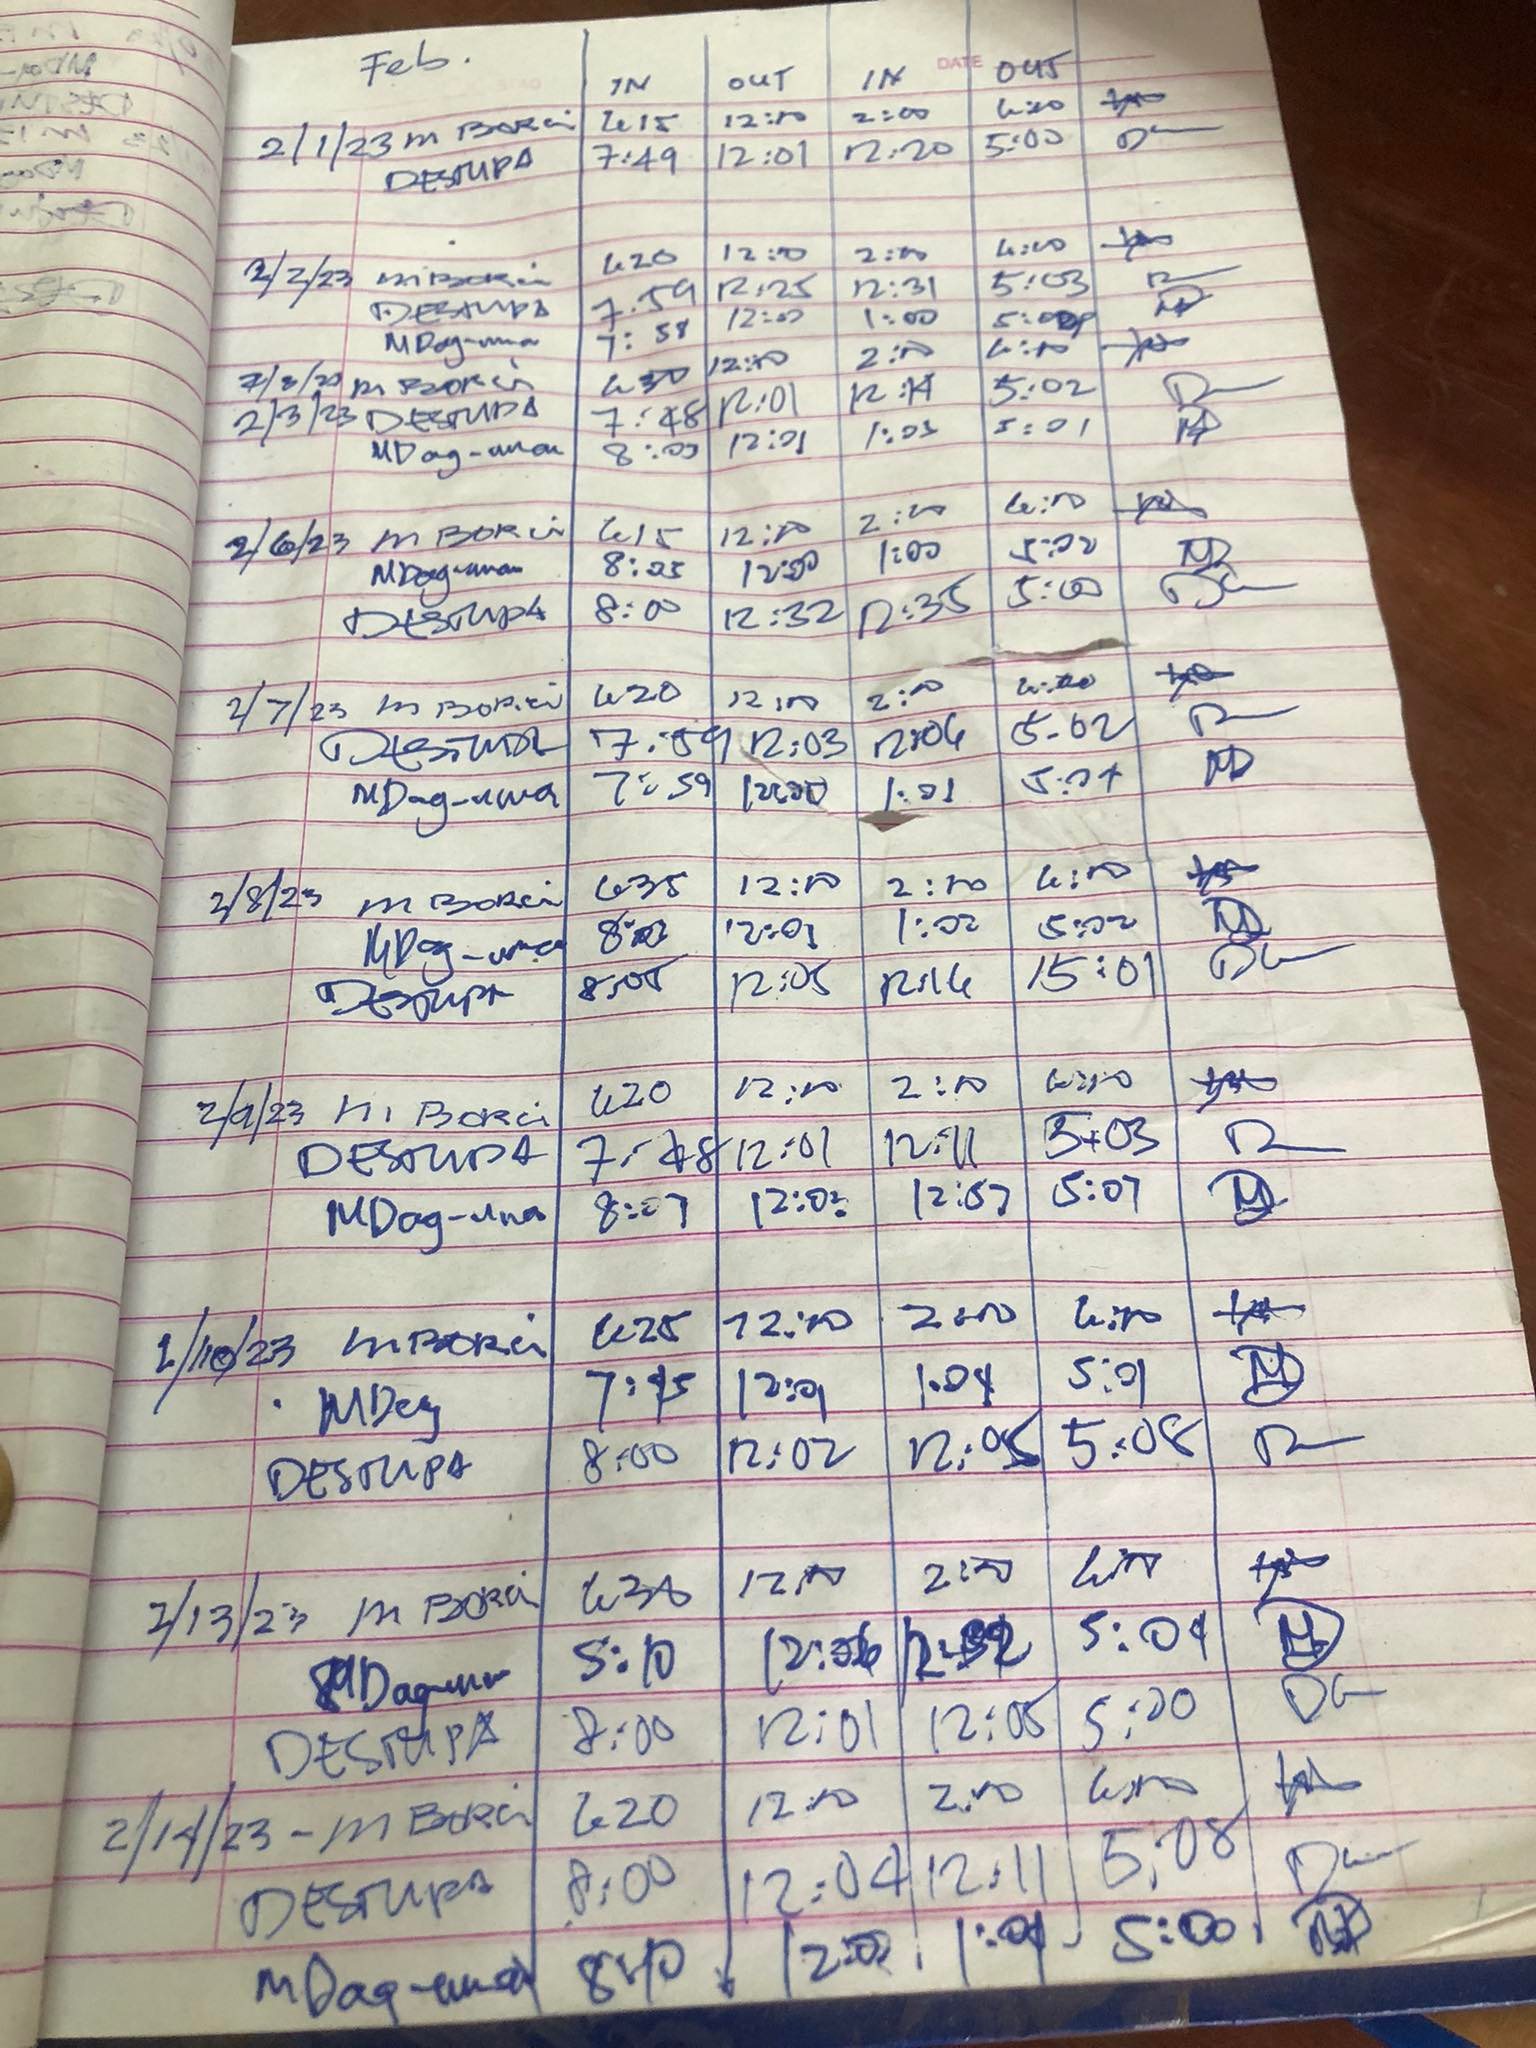 Feb.
IN OUT IN DATE OUT
2/1/23 M BORCI 615 12:00 2:00 6:00
DESTUPA 7:49 12:01 12:20 5:00
2/2/23 M BORCI 620 12:00 2:00 6:00
DESTUPA 7:59 12:25 12:31 5:03
MDag-uma 7:58 12:00 1:00 5:00
M BORCI 630 12:00 2:00 6:00
2/3/23 DESTUPA 7:48 12:01 12:14 5:02
MDag-uman 8:00 12:01 1:03 5:01
2/6/23 M BORCI 615 12:00 2:00 6:00
MDag-uman 8:05 12:00 1:00 5:02
DESTUPA 8:00 12:32 12:35 5:00
2/7/23 M BORCI 620 12:00 2:00 6:00
DESTUPA 7:59 12:03 12:06 5:02
MDag-uma 7:59 12:00 1:01 5:04
2/8/23 M BORCI 635 12:00 2:00 6:00
MDag-uma 12:01 1:02 5:02
DESTUPA 8:05 12:05 12:16 5:01
2/9/23 M BORCI 620 12:00 2:00 6:00
DESTUPA 7:48 12:01 12:11 5:03
MDag-uma 8:07 12:02 12:57 5:07
2/10/23 M BORCI 625 12:00 2:00 6:00
MDag 7:45 12:01 1:04 5:01
DESTUPA 8:00 12:02 12:05 5:08
2/13/23 M BORCI 630 12:00 2:00 6:00
MDag-uma 5:10 5:04
DESTUPA 8:00 12:01 12:05 5:00
2/14/23 - M BORCI 620 12:00 2:00 6:00
DESTUPA 8:00 12:04 12:11 5:08
MDag-uma 12:02 1:01 5:00